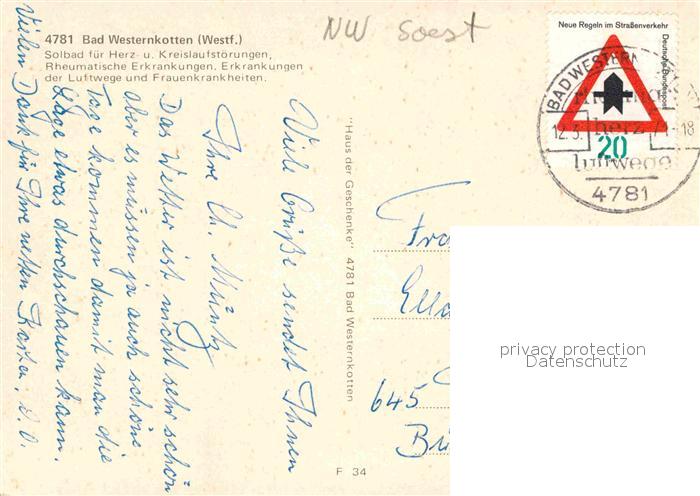 NW Soest
4781 Bad Westernkotten (Westf.)
Solbad für Herz- u. Kreislaufstörungen,
Rheumatische Erkrankungen, Erkrankungen
der Luftwege und Frauenkrankheiten.
Neue Regeln im Straßenverkehr
Deutsche Bundespost
20
BAD WESTERN
12.3.
71-18
herz
luftwege
4781
Viele Grüße sendet Ihnen
Ihre Ch. Müntz
Das Wetter ist nicht sehr schön
aber es müssen ja auch schöne
Tage kommen damit man die
Tage etwas durchschauen kann.
Vielen Dank für Ihre netten Karten. D.O.
"Haus der Geschenke" 4781 Bad Westernkotten
Fra
Ella
645
Brü
F 34
privacy protection
Datenschutz